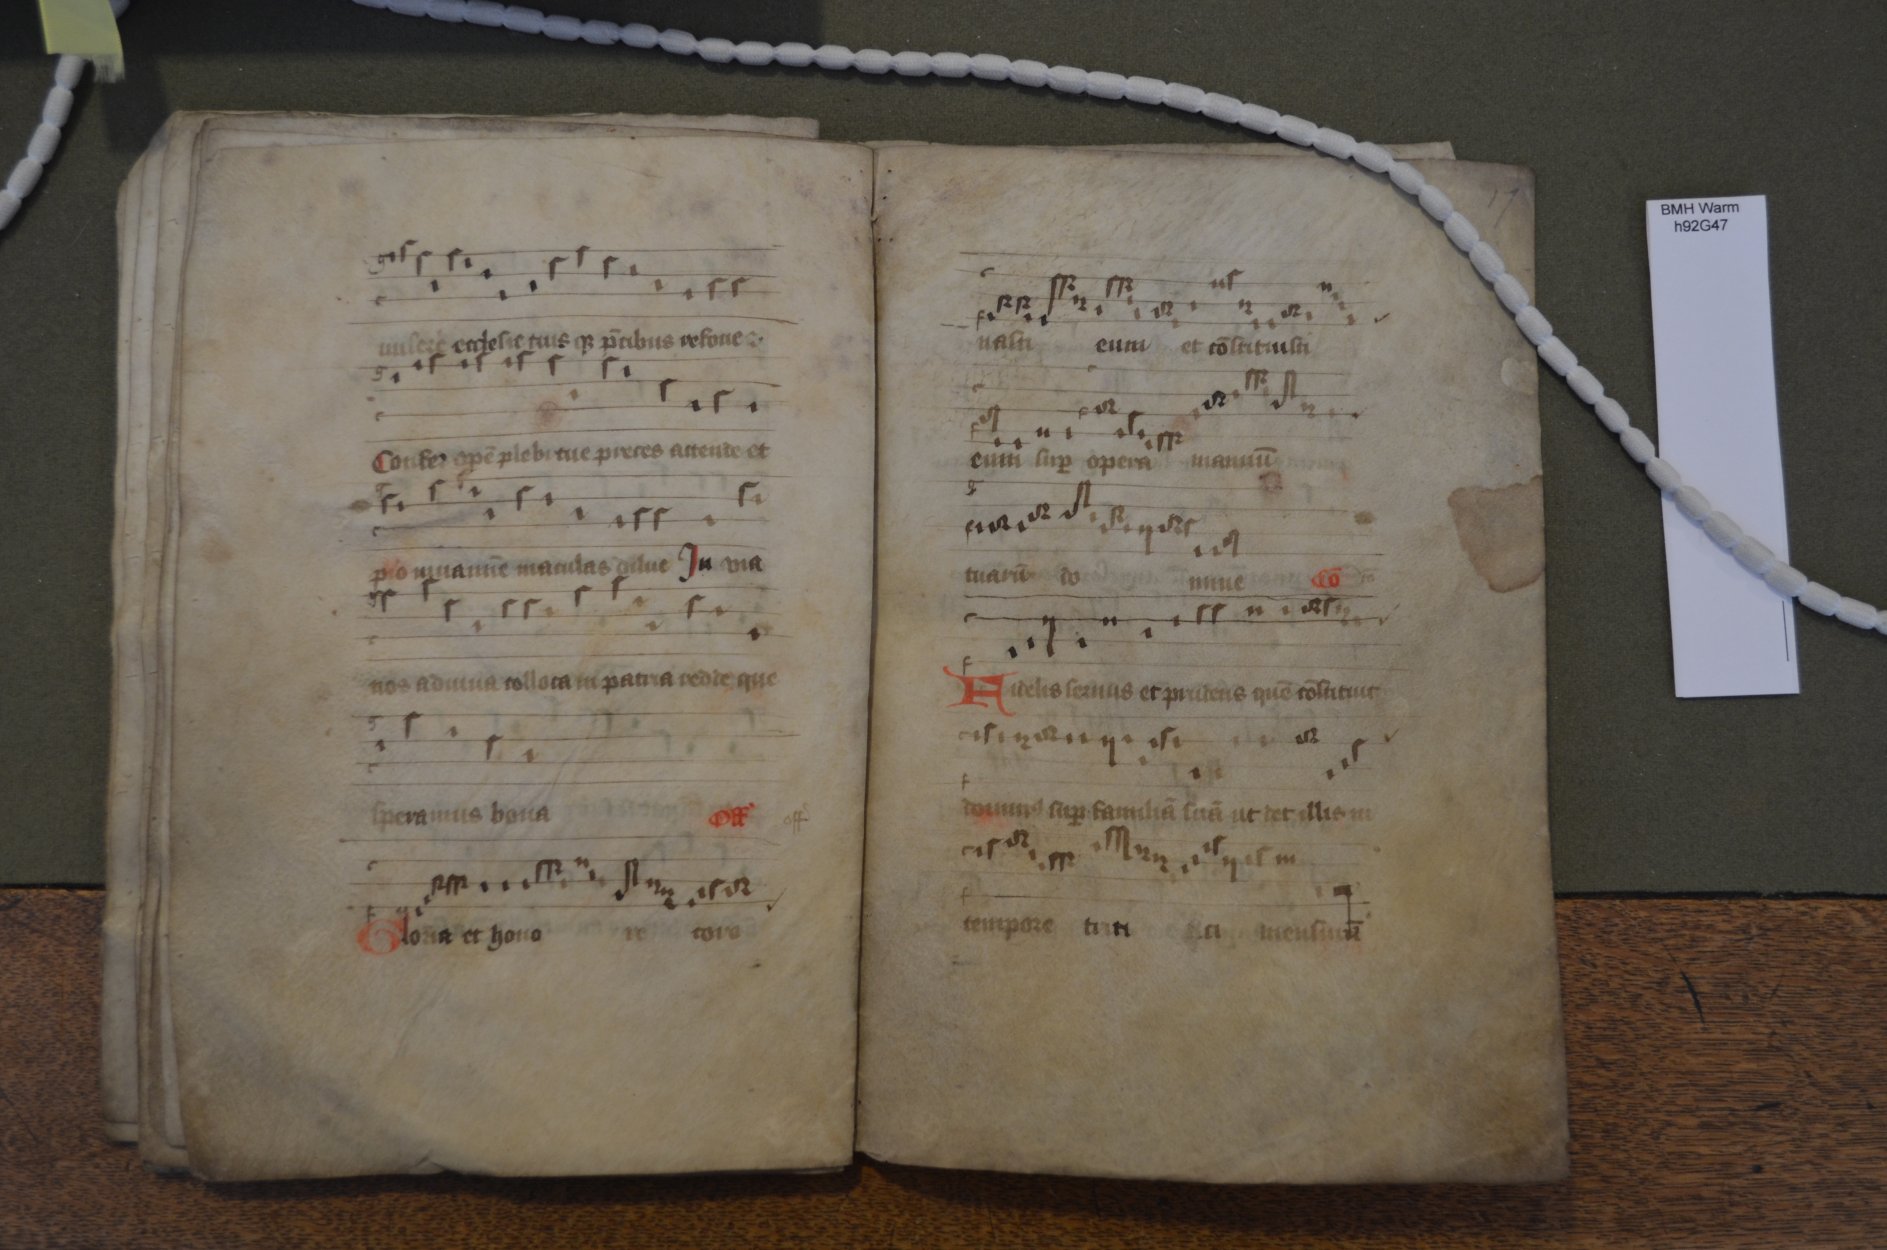 miserē ecclesie tuis q̄ p̄cibus refove
Confer opē plebi tue preces attende et
nos adiuua colloca in patria redde que
speramus bona Off̄ off̄
Gloria et hono re coro
17
nasti eum et cōstituisti
eum sup̱ opera manuū
tuarū do mine Cō
Fidelis seruus et prudens quē cōstituit
dominus sup̱ familiā suā ut det illis in
tempore triti ci mensurā
BMH Warm
h92G47